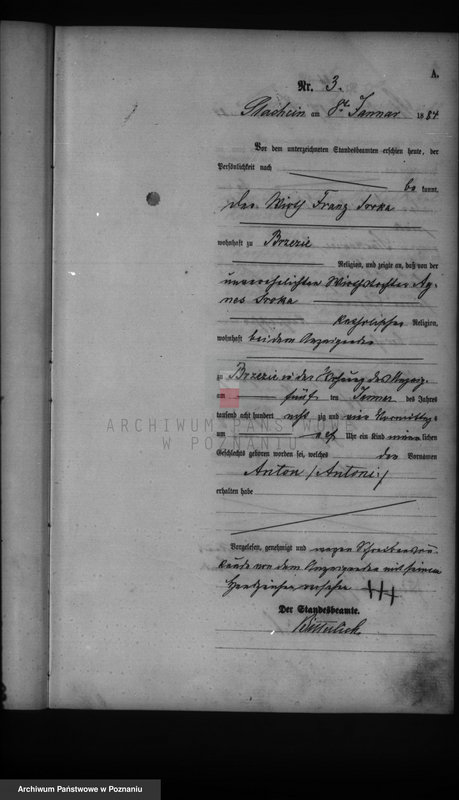 A.
Nr. 3.
am 8t Januar 1884
Vor dem unterzeichneten Standesbeamten erschien heute, der
Persönlichkeit nach
be kannt,
der Wirth Franz Sroka
wohnhaft zu Brzezie
Religion, und zeigte an, daß von der
unverehelichten Wirthstochter Ag-
nes Sroka
katholischer Religion,
wohnhaft bei dem Anzeigenden
zu Brzezie in der Wohnung des
am fünf ten Januar des Jahres
tausend acht hundert acht zig und vier Vormittags
um elf Uhr ein Kind männlichen
Geschlechts geboren worden sei, welches den Vornamen
Anton /Antoni/
erhalten habe
Vorgelesen, genehmigt und wegen Schreibensun-
kunde von dem Anzeigenden mit seinem
Handzeichen versehen +++
Der Standesbeamte.
ARCHIWUM PAŃSTWOWE
W POZNANIU
Archiwum Państwowe w Poznaniu